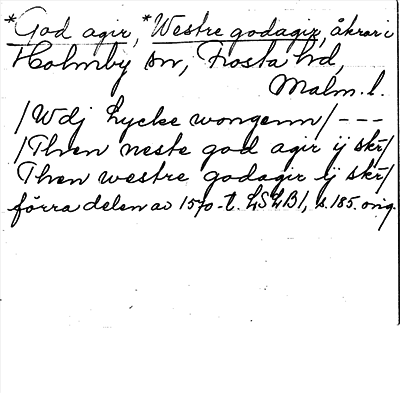 *God agir, *Westre godagir, åkrar i
Holmby sn, Frosta hd,
Malm. l.
/Wdj Lycke wongenn/ ---
/Then neste god agir ij skr/
Then westre godagir ij skr/
förra delen av 1570-t. LSLB1, s. 185. orig.